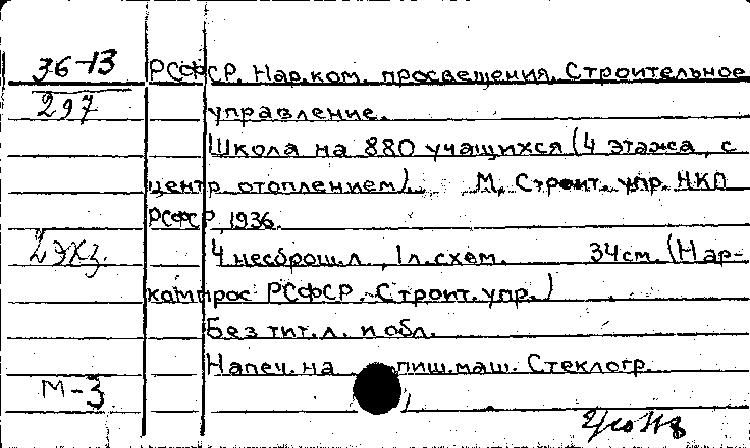 36-13 РСФСР. Нар.ком. просвещения. Строительное
297 управление.
Школа на 880 учащихся (4 этажа, с
центр. отоплением). М., Строит. упр. НКП
РСФСР, 1936.
2 экз. 4 несброш.л., 1 л.схем. 34см. (Нар-
компрос РСФСР. Строит.упр.)
Без тит.л. и обл.
Напеч. на пиш.маш. Стеклогр.
М-3